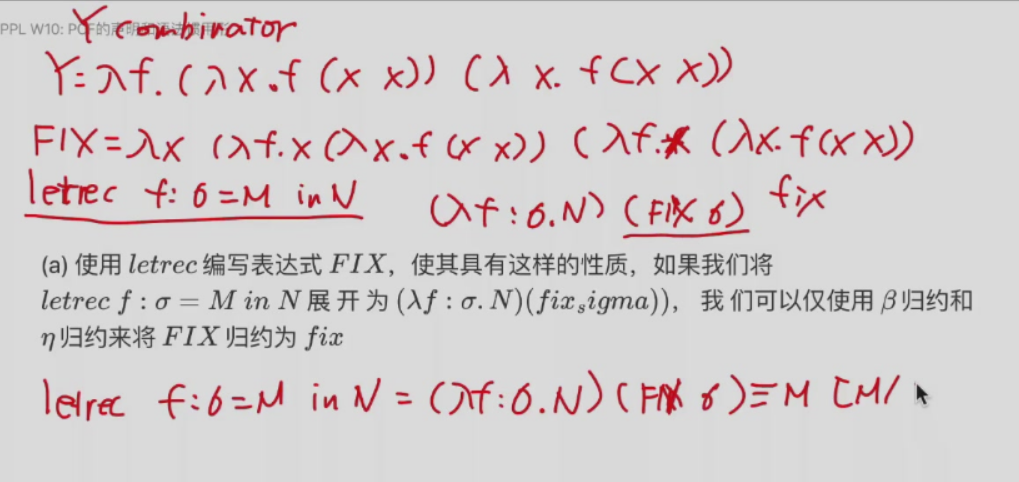 Y combinator
PPL W10: PCF的声明和语法
Y=λf.(λx.f(x x))(λx.f(x x))
FIX=λx(λf.x(λx.f(x x))(λf.x(λx.f(x x))
letrec f:σ=M in N (λf:σ.N)(FIX σ) fix
(a) 使用 letrec 编写表达式 FIX，使其具有这样的性质，如果我们将
letrec f : σ = M in N 展开为 (λf : σ. N)(fix_sigma))， 我们可以仅使用 β 归约和
η 归约来将 FIX 归约为 fix
letrec f:σ=M in N = (λf:σ.N)(FIX σ)≡M [M/